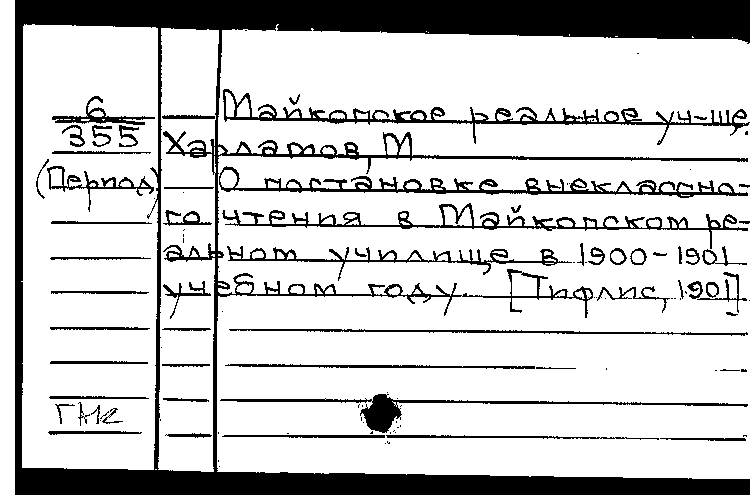 6
355
(Период)
Майкопское реальное уч-ще
Харламов, М
О постановке внеклассно-
го чтения в Майкопском ре-
альном училище в 1900-1901
учебном году. [Тифлис, 1901].